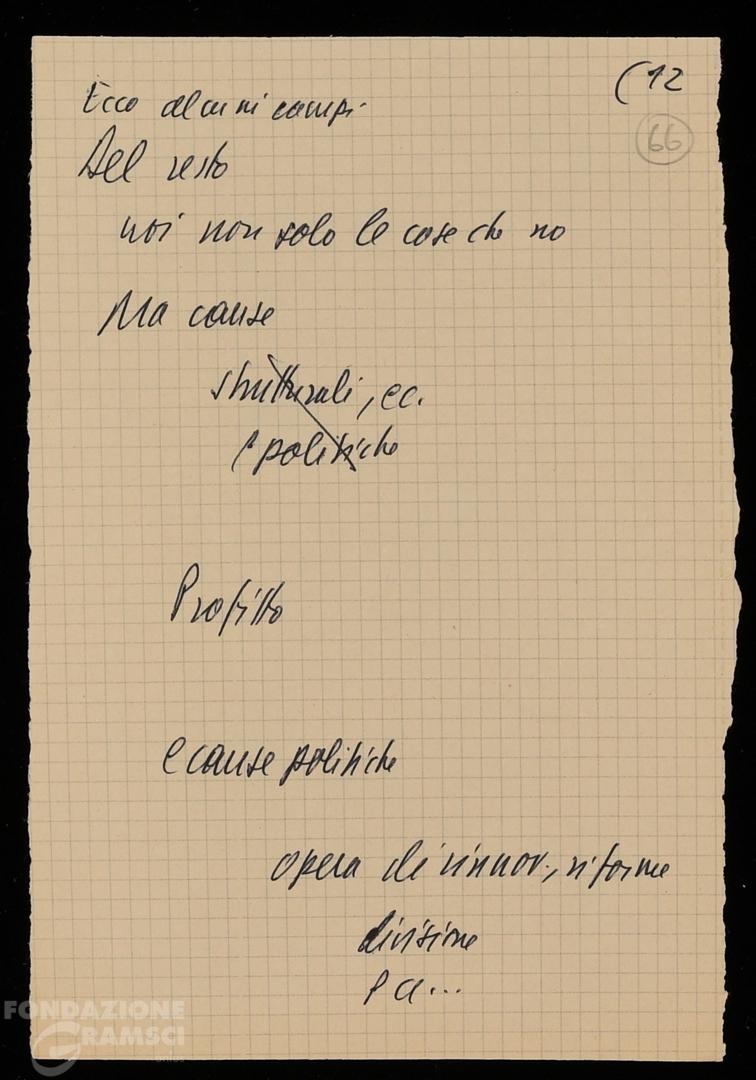 (12
66
Ecco alcuni campi
Del resto
noi non solo le cose che no
Ma cause
strutturali, ec.
e politiche
Profitto
e cause politiche
opera di rinnov., riforme
divisione
FONDAZIONE
GRAMSCI
onlus